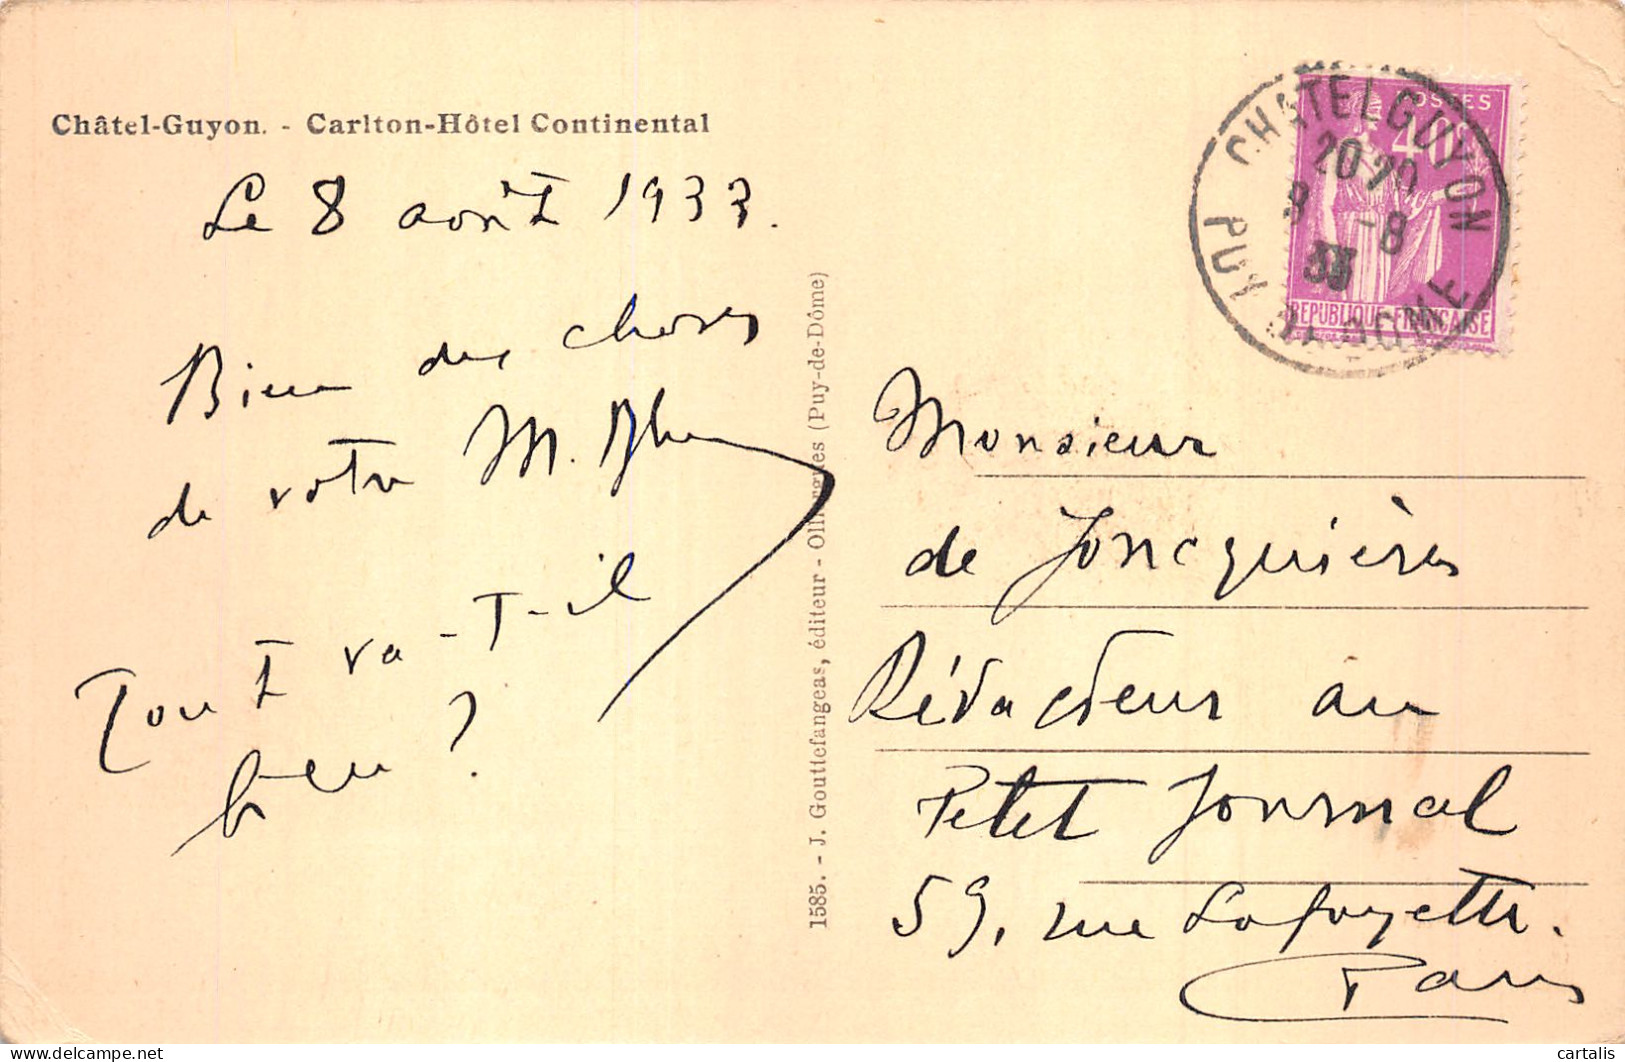 Châtel-Guyon. - Carlton-Hôtel Continental
Le 8 août 1933.
Bien des choses
de votre M.
Tout va-t-il
bien ?
1585. - J. Gouttefangeas, éditeur - Olliergues (Puy-de-Dôme)
CHATELGUYON
PUY DE DOME
8 -8
33
POSTES
40c
REPUBLIQUE FRANÇAISE
Monsieur
de Joncquières
Rédacteur au
Petit Journal
59, rue Lafayette.
Paris
cartalis